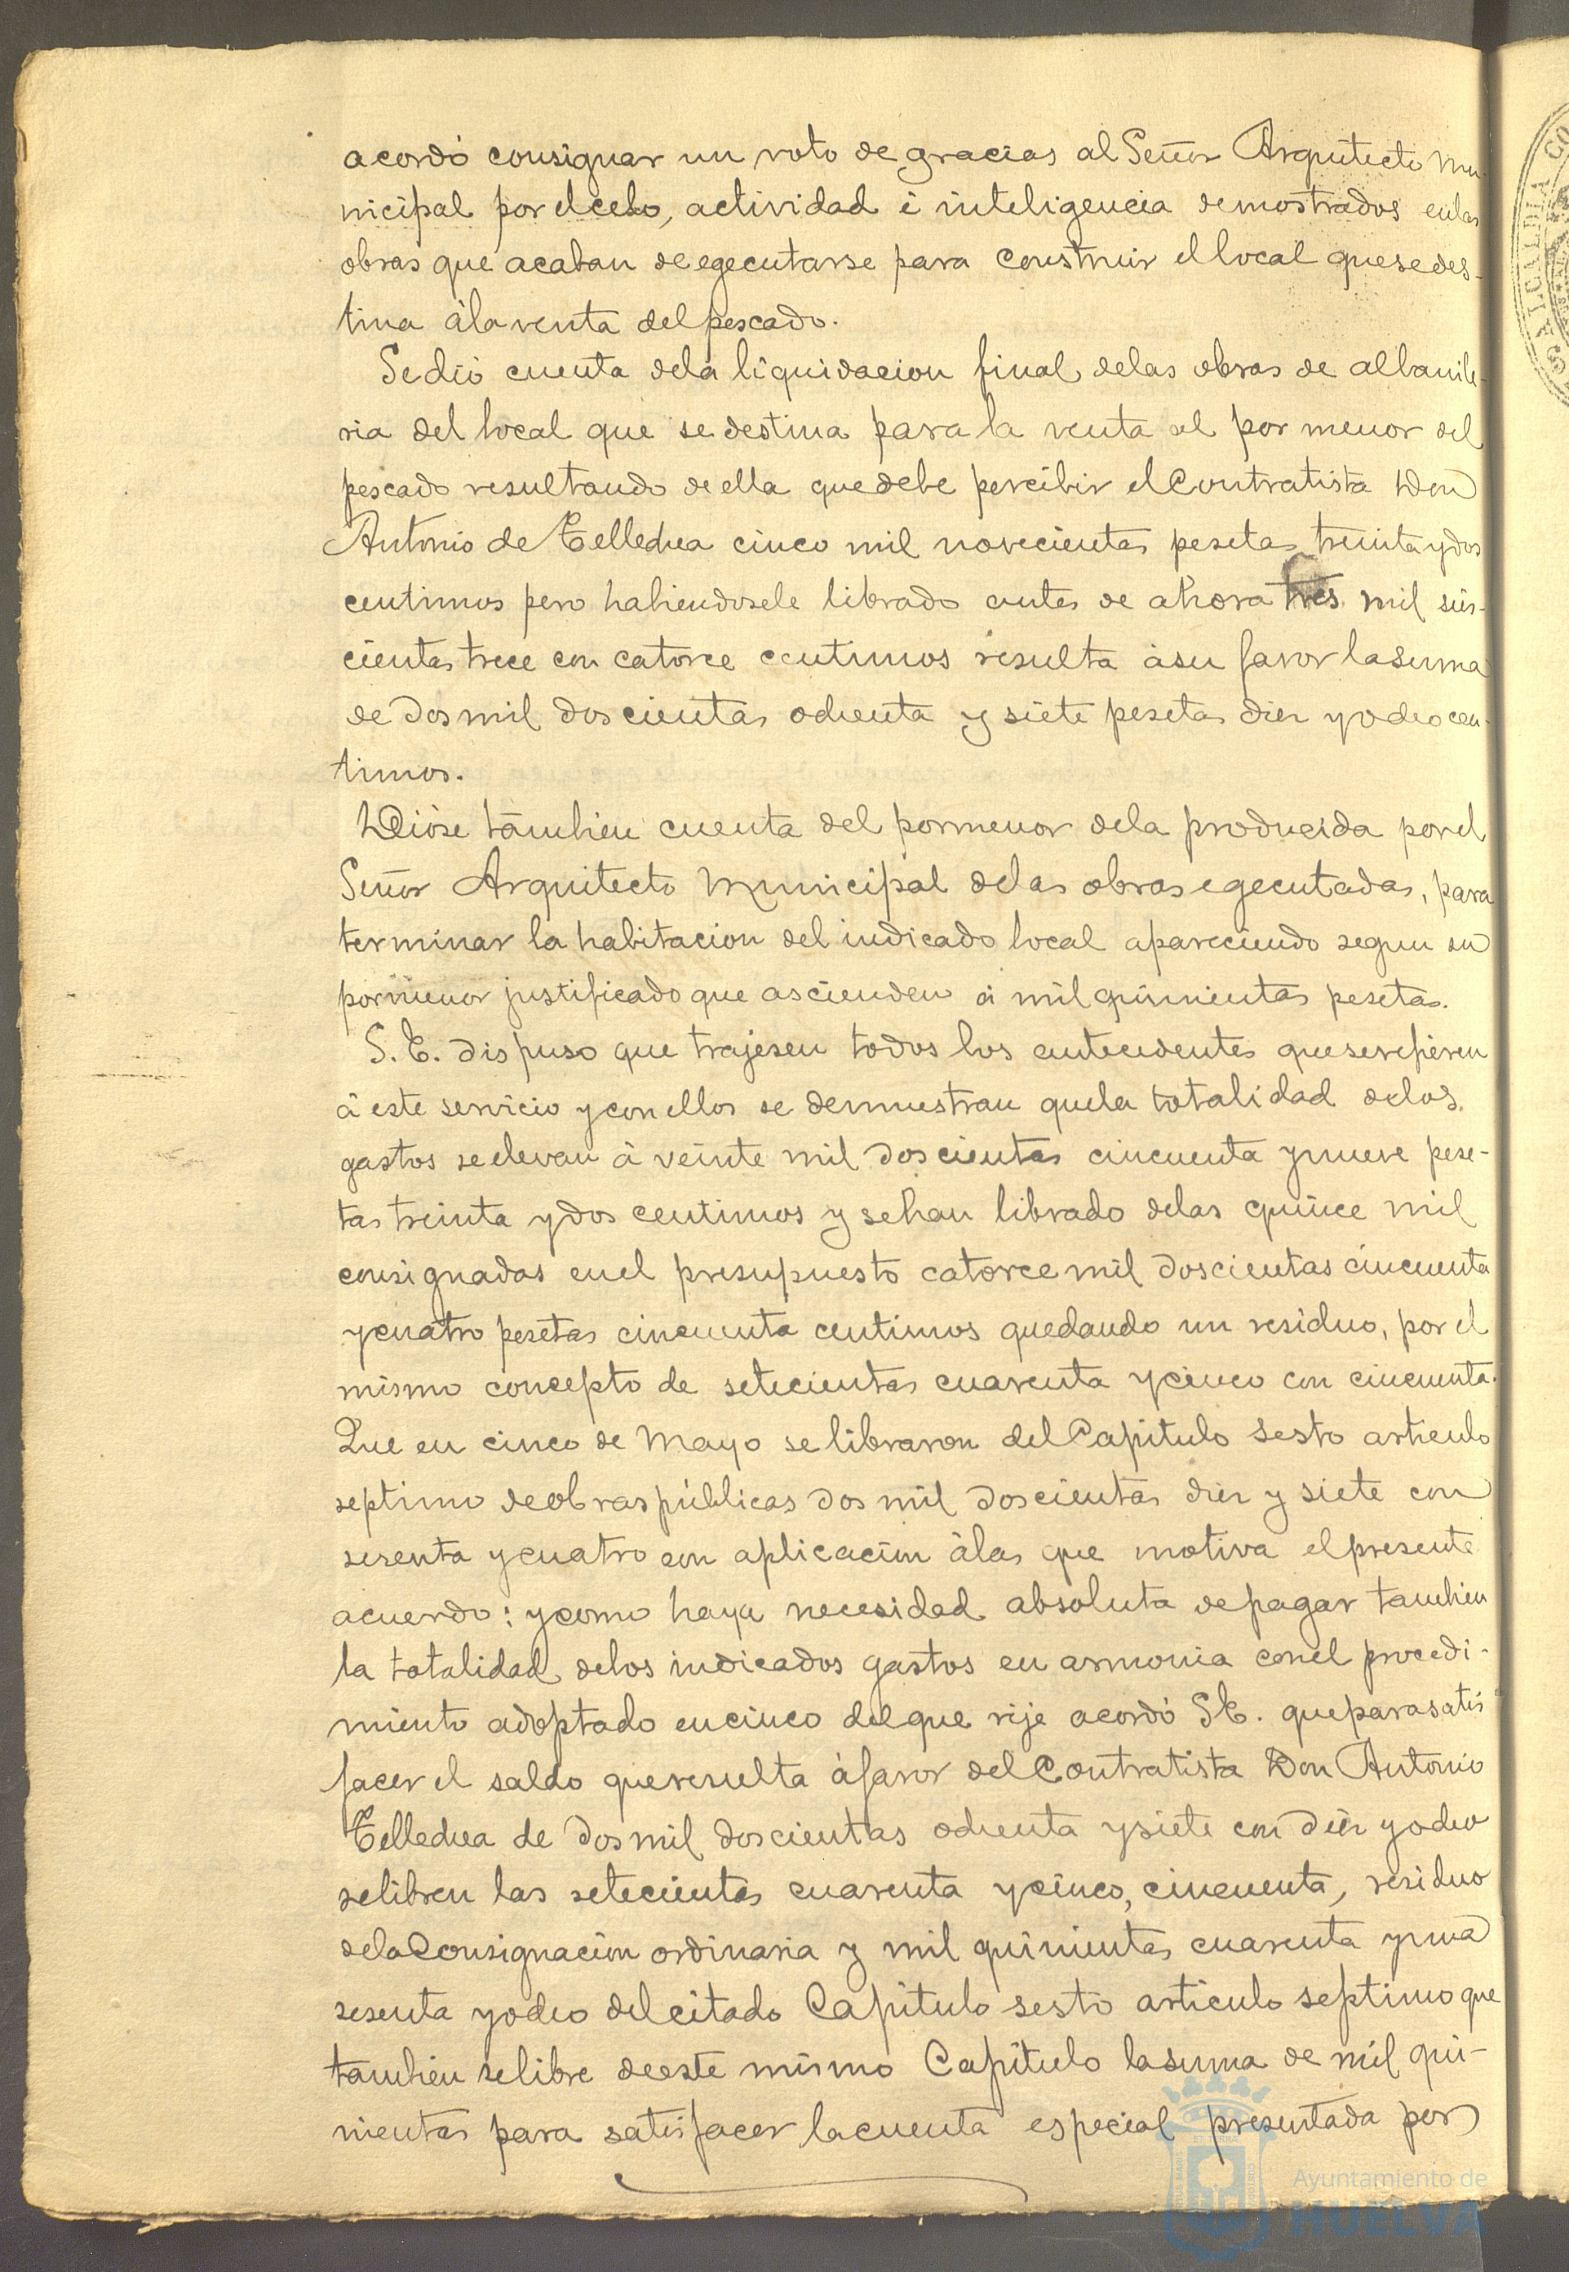 acordó consignar un voto de gracias al Señor Arquitecto Mu-
nicipal por el celo, actividad é inteligencia demostrados en las
obras que acaban de egecutarse para construir el local que se des-
tina á la venta del pescado.
Se dió cuenta de la liquidacion final de las obras de albañile-
ria del local que se destina para la venta al por menor del
pescado resultando de ella que debe percibir el Contratista Don
Antonio de Tellechea cinco mil novecientas pesetas treinta y dos
centimos pero habiendosele librado antes de ahora tres mil seis-
cientas trece con catorce centimos resulta á su favor la suma
de dos mil doscientas ochenta y siete pesetas diez y ocho cen-
timos.
Dióse tambien cuenta del pormenor de la producida por el
Señor Arquitecto Municipal de las obras egecutadas, para
terminar la habitacion del indicado local apareciendo segun su
pormenor justificado que ascienden á mil quinientas pesetas.
S. E. dispuso que trajesen todos los antecedentes que se refieren
á este servicio y con ellos se demuestran que la totalidad de los
gastos se elevan á veinte mil doscientas cincuenta y nueve pese-
tas treinta y dos centimos y se han librado de las quince mil
consignadas en el presupuesto catorce mil doscientas cincuenta
y cuatro pesetas cincuenta centimos quedando un residuo, por el
mismo concepto de setecientas cuarenta y cinco con cincuenta.
Que en cinco de Mayo se libraron del Capitulo Sesto articulo
septimo de obras públicas dos mil doscientas diez y siete con
sesenta y cuatro con aplicacion á las que motiva el presente
acuerdo: y como haya necesidad absoluta de pagar tambien
la totalidad de los indicados gastos en armonia con el procedi-
miento adoptado en cinco del que rije acordó S. E. que para satis
facer el saldo que resulta á favor del Contratista Don Antonio
Tellechea de dos mil doscientas ochenta y siete con diez y ocho
se libren las setecientas cuarenta y cinco, cincuenta, residuo
de la Consignacion ordinaria y mil quinientas cuarenta y una
sesenta y ocho del citado Capitulo sesto articulo septimo que
tambien se libre de este mismo Capitulo la suma de mil qui-
nientas para satisfacer la cuenta especial presentada por
Ayuntamiento de
HUELVA
ALCALDIA CO